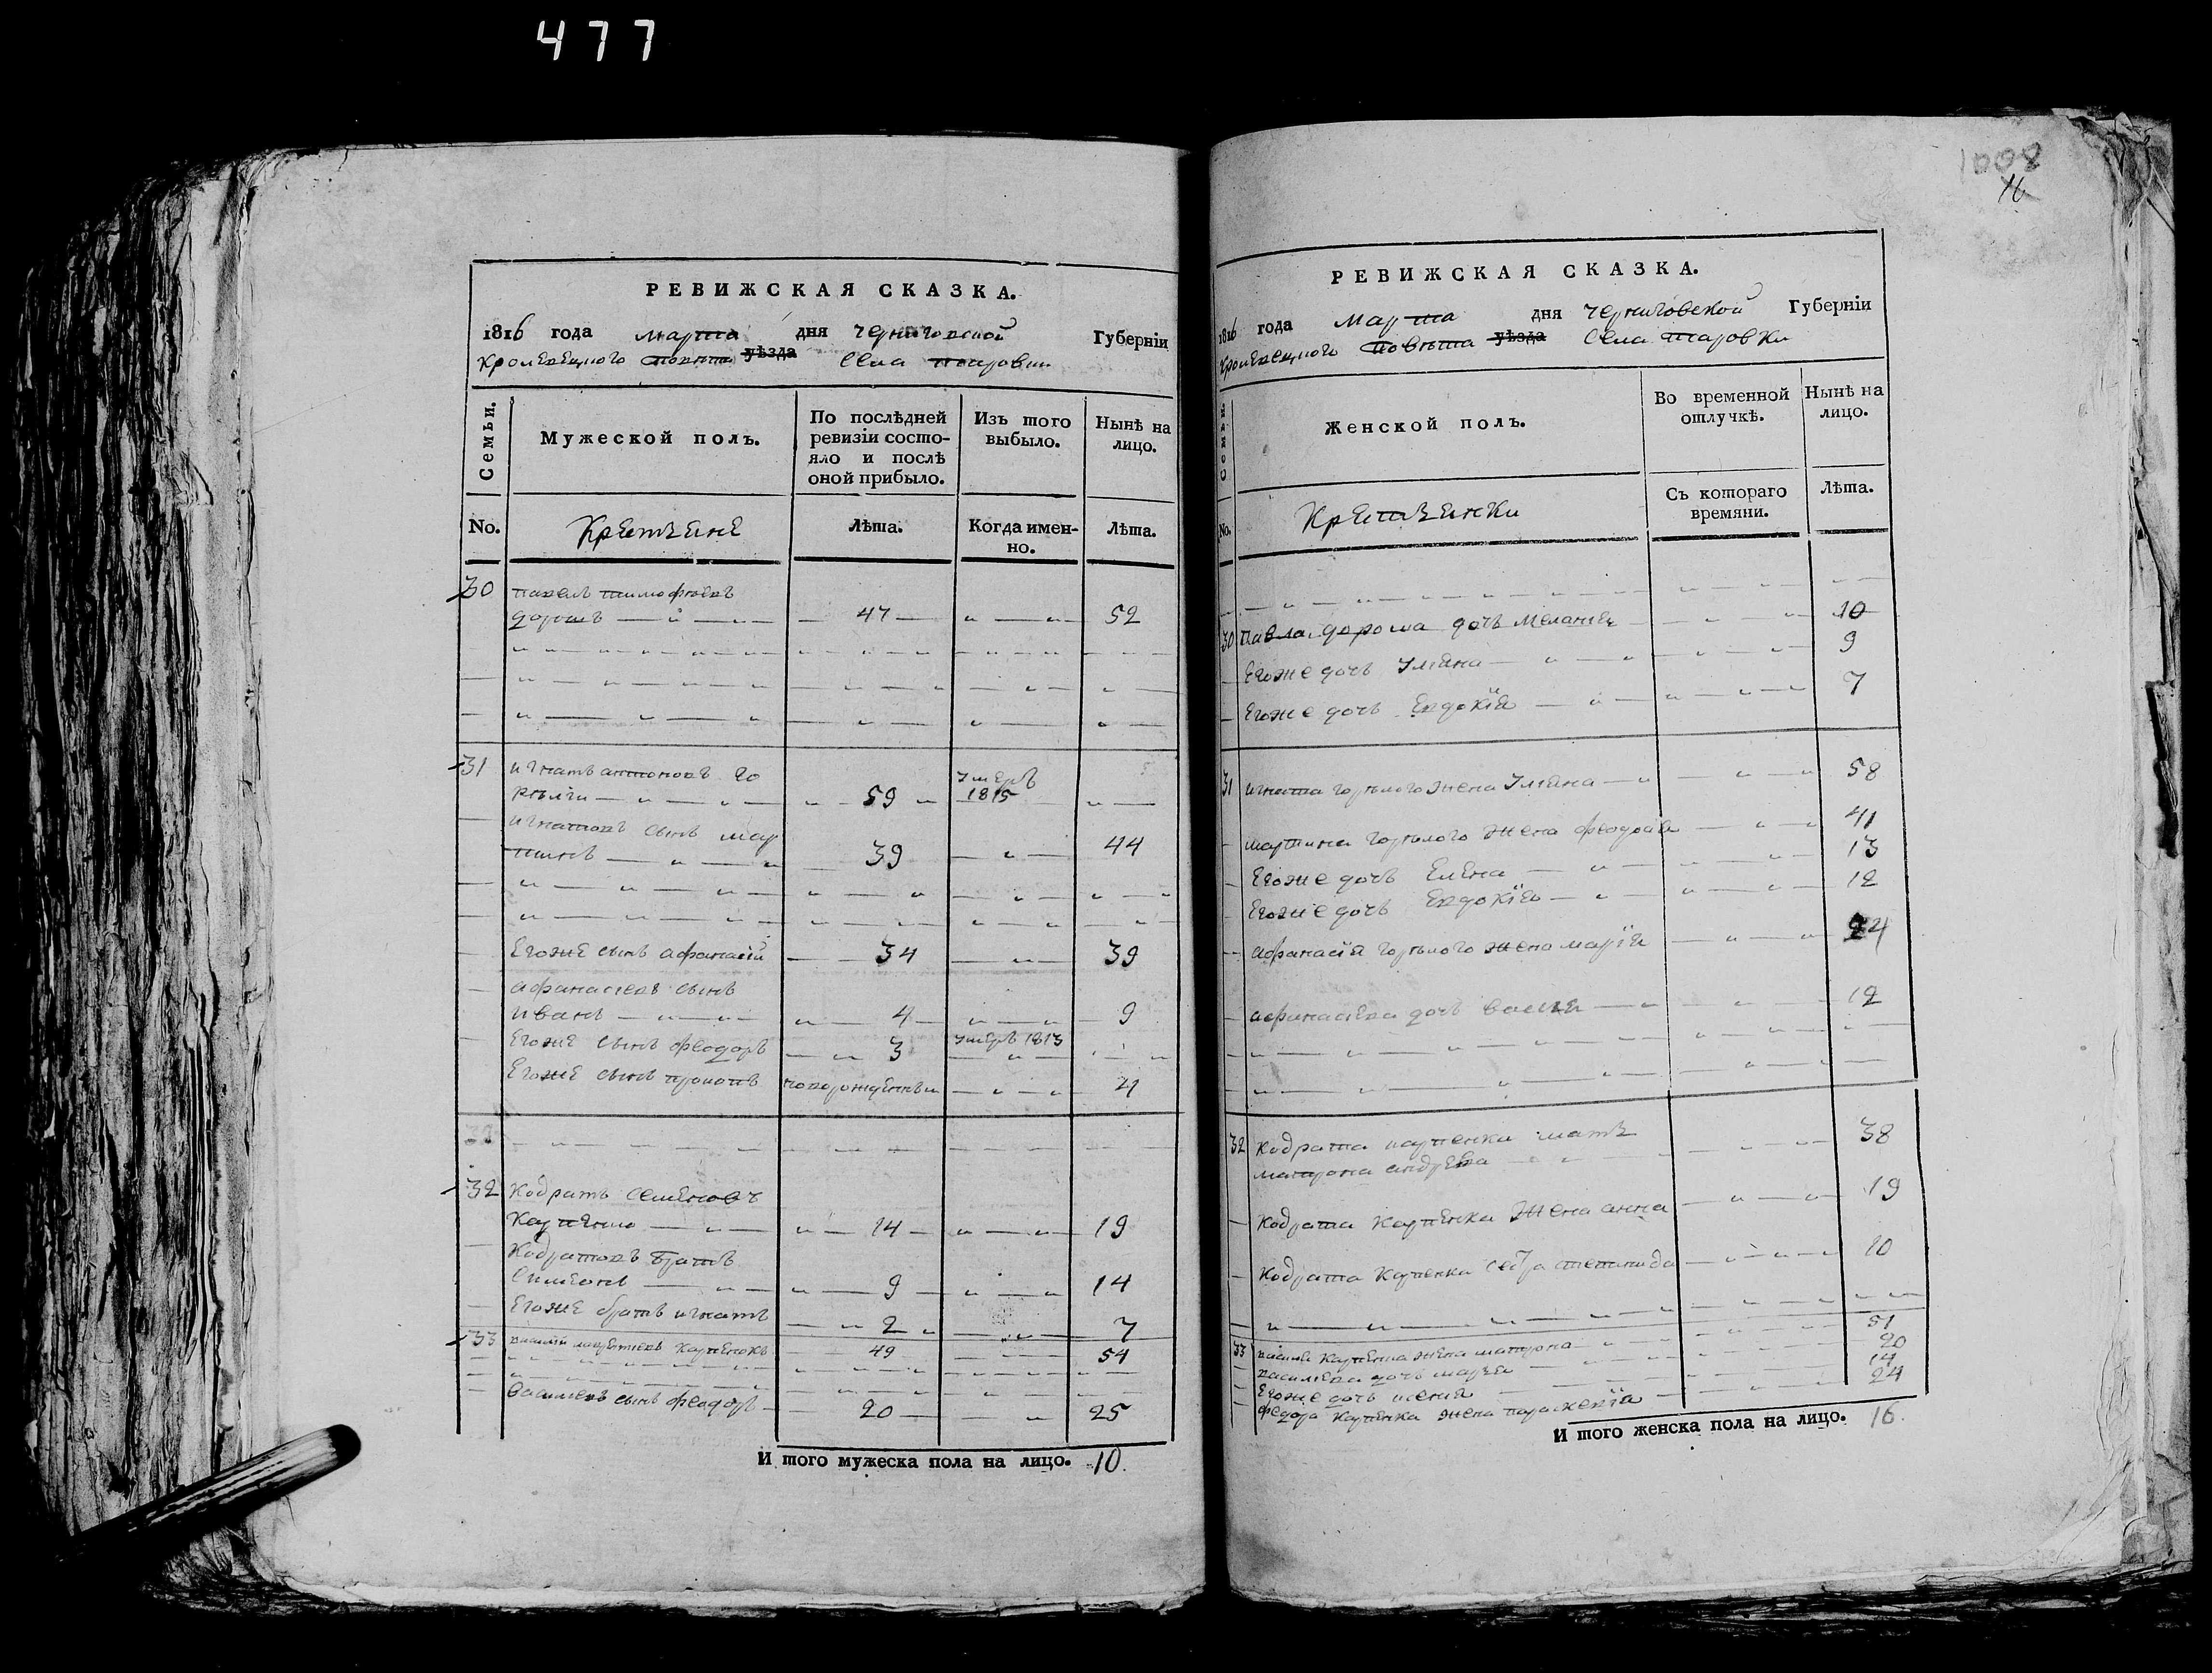 477
РЕВИЖСКАЯ СКАЗКА.
1816 года марта дня черниговской Губерніи
Кролевецкого повѣта уѣзда Села
Семьи.
Мужеской полъ.
По послѣдней ревизіи состо-
яло и послѣ
оной прибыло.
Изъ того
выбыло.
Нынѣ на
лицо.
No.
Лѣта.
Когда имен-
но.
Лѣта.
30 павелъ тимофѣевъ
дорошъ 47 52
31 игнатъ антоновъ го
рѣлій 59 умеръ 1815
игнатовъ сынъ мар
тинъ 39 44
Егоже сынъ афанасій 34 39
афанасіевъ сынъ
иванъ 4 9
Егоже сынъ феодоръ 3 умеръ 1813
Егоже сынъ прокопъ новорожденный 4
32 Кодратъ семеновъ
Карпенко 14 19
Кодратовъ братъ
Симеонъ 9 14
Егоже братъ игнатъ 2 7
33 василій Карпенокъ 49 54
Василіевъ сынъ феодоръ 20 25
И того мужеска пола на лицо. 10.
1008
16
РЕВИЖСКАЯ СКАЗКА.
1816 года Марта дня черниговской Губерніи
Кролевецкого повѣта уѣзда Села
Семьи.
Женской полъ.
Во временной
отлучкѣ.
Нынѣ на
лицо.
No.
Съ котораго
времяни.
Лѣта.
30 павла дороша дочь Меланія 10
Егоже дочь Уліяна 9
Егоже дочь Евдокія 7
31 игната горѣлого жена Уліяна 58
мартина горѣлого жена феодосія 41
Егоже дочь Елена 13
Егоже дочь Евдокія 12
афанасія горѣлого жена марія 24
афанасіева дочь 12
32 Кодрата карпенка мать
матрона андреева 38
Кодрата Карпенка жена анна 19
Кодрата Карпенка сестра степанида 10
33 василія Карпенка жена матрона 51
василіева дочь 20
Егоже дочь ксенія 14
федора Карпенка жена параскевія 24
И того женска пола на лицо. 16.